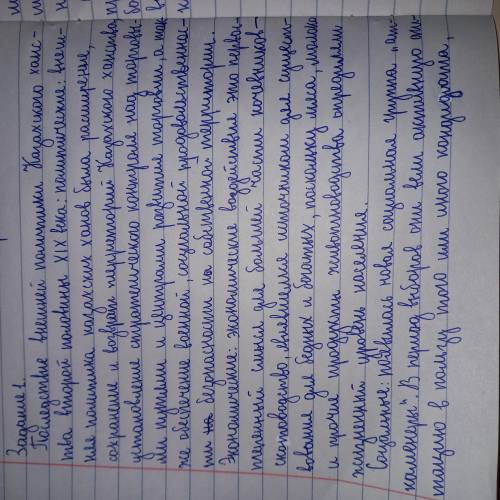 Задание 1.
Последствие внешней политики Казахского ханс-
тва второй половины XIX века: политические: внеш-
няя политика казахских ханов была расширение,
сохранение и возврат территорий Казахского ханства,
установление стратегического контроля над торговы-
ми путями и центрами развитие торговли, а так
же обеспечение военной, социальной, продовольственнос-
ти безопасности на собственной территории.
Экономические: экономические воздействия это перво-
степенный смысл для большей части кочевников-
скотоводство, являвшиеся источником для сущест-
вования для бедных и богатых, поскольку мяса, молока
и прочих продукты животноводства определяли
жизненный уровень населения.
Социальные: появилась новая социальная группа "ат-
каминеры". В период выборов они вели активную аги-
тацию в пользу того или иного кандидата,